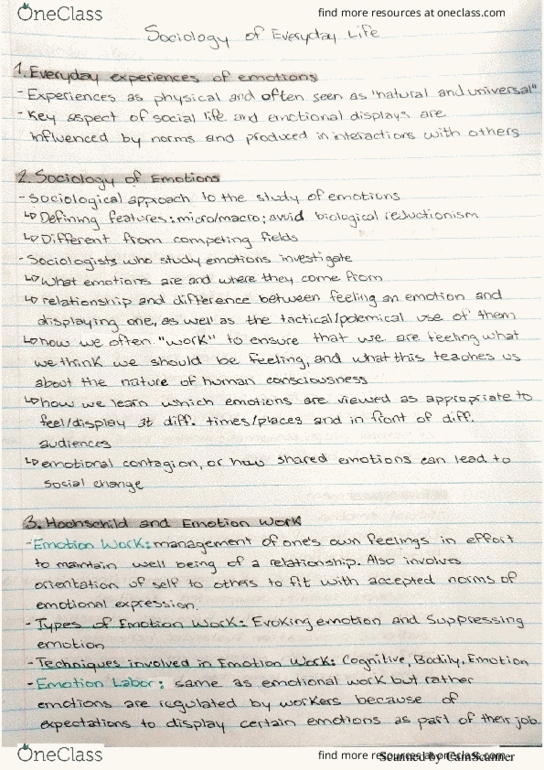 OneClass
find more resources at oneclass.com
Sociology of Everyday Life
1. Everyday experiences of emotions
- Experiences as physical and often seen as "natural and universal"
- Key aspect of social life and emotional displays are
influenced by norms and produced in interactions with others
2. Sociology of Emotions
- Sociological approach to the study of emotions
↳ Defining features: micro/macro; avoid biological reductionism
↳ Different from competing fields
- Sociologists who study emotions investigate
↳ What emotions are and where they come from
↳ relationship and difference between feeling an emotion and
displaying one, as well as the tactical/polemical use of them
↳ how we often "work" to ensure that we are feeling what
we think we should be feeling, and what this teaches us
about the nature of human consciousness
↳ how we learn which emotions are viewed as appropriate to
feel/display at diff. times/places and in front of diff.
audiences
↳ emotional contagion, or how shared emotions can lead to
social change
3. Hochschild and Emotion Work
- Emotion Work: management of one's own feelings in effort
to maintain well being of a relationship. Also involves
orientation of self to others to fit with accepted norms of
emotional expression.
- Types of Emotion Work: Evoking emotion and Suppressing
emotion
- Techniques involved in Emotion Work: Cognitive, Bodily, Emotion
- Emotion Labor: same as emotional work but rather
emotions are regulated by workers because of
expectations to display certain emotions as part of their job.
OneClass
find more resources at oneclass.com
Scanned by CamScanner